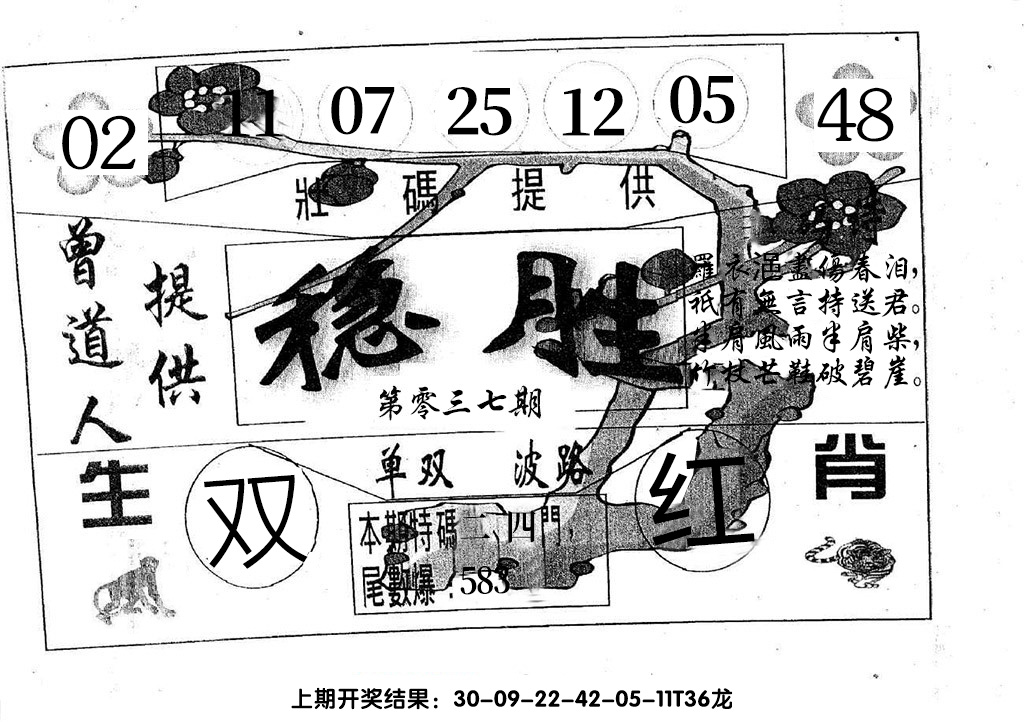 02 11 07 25 12 05 48
壯碼提供
曾道人
提供
稳胜
第零三七期
羅衣浥盡傷春泪，
祇有無言持送君。
半肩風雨半肩柴，
竹杖芒鞋破碧崖。
单双 波路
生
双
红
肖
本期特碼二、四門，
尾數爆：583
上期开奖结果：30-09-22-42-05-11T36龙